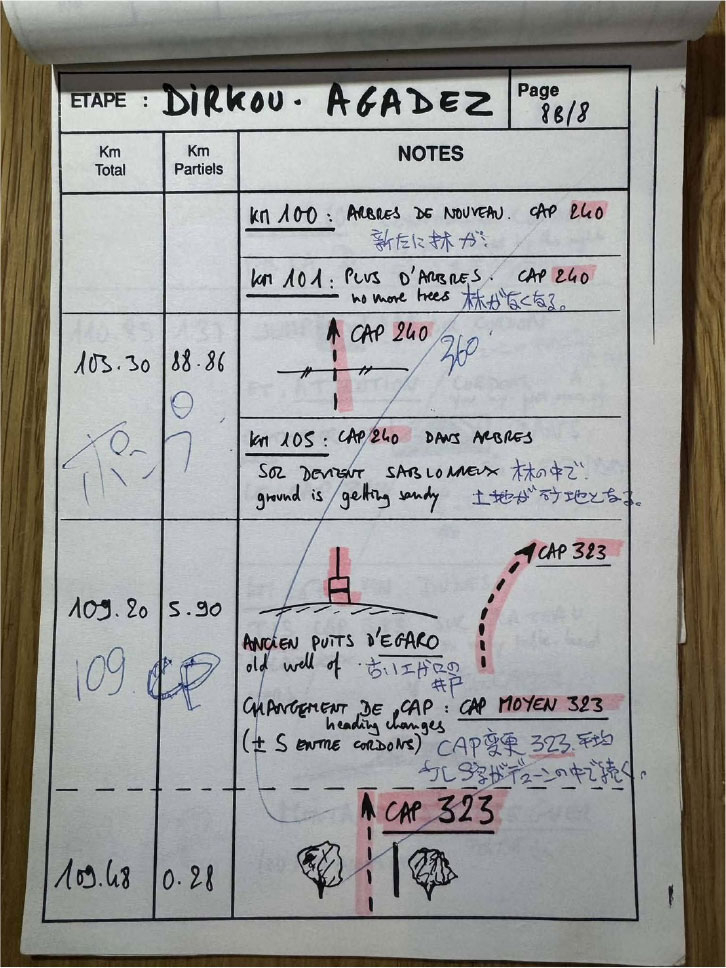 ETAPE : DIRKOU. AGADEZ
Page
8B/8
Km
Total
Km
Partiels
NOTES
KM 100 : ARBRES DE NOUVEAU. CAP 240
新たに林が.
KM 101 : PLUS D'ARBRES. CAP 240
no more trees 林がなくなる。
CAP 240
360
103.30 88.86
KM 105 : CAP 240 DANS ARBRES
SOL DEVIENT SABLONNEUX 林の中で!
ground is getting sandy 土地が砂地となる。
CAP 323
109.20 5.90
ANCIEN PUITS D'EGARO
old well of 古いエガロの
井戸
109. CP
CHANGEMENT DE CAP : CAP MOYEN 323
heading changes
(± S ENTRE CORDONS) CAP変更 323.平均
S字がデューンの中で続く.
CAP 323
109.48 0.28